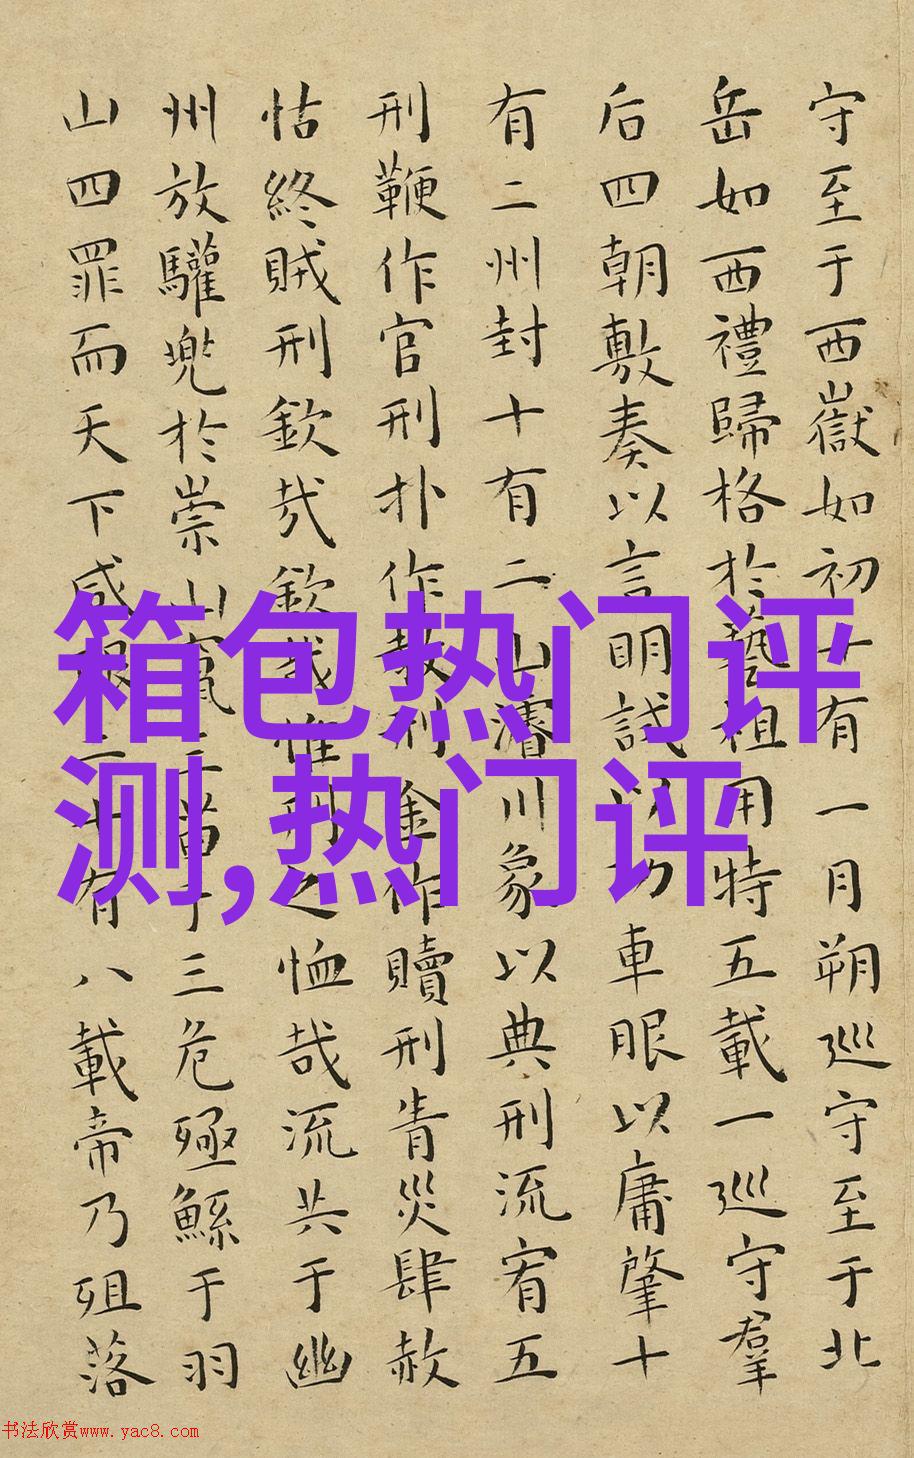 守至于西嶽如初十有一月朔巡守至于北
岳如西禮歸格於藝祖用特五載一巡守羣
后四朝敷奏以言明試以功車眼以庸肇十
有二州封十有二山濬川象以典刑流宥五
刑鞭作官刑扑作教刑金作贖刑眚災肆赦
怙終賊刑欽哉欽哉惟刑之恤哉流共于幽
州放驩兜於崇山竄三苗于三危殛鯀于羽
山四罪而天下咸服二十有八載帝乃殂落
箱包热门评
测,热门评
书法欣赏www.yac8.com